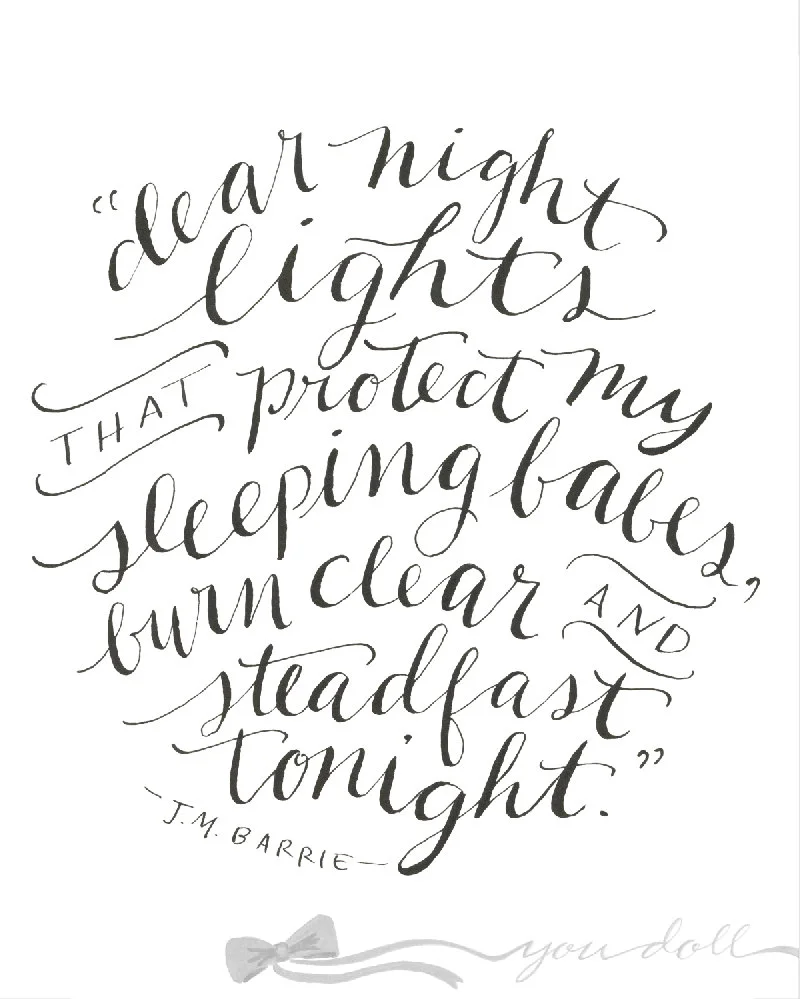 “dear night
lights
THAT protect my
sleeping babes,
burn clear AND
steadfast
tonight.”
-J.M. BARRIE-
you doll